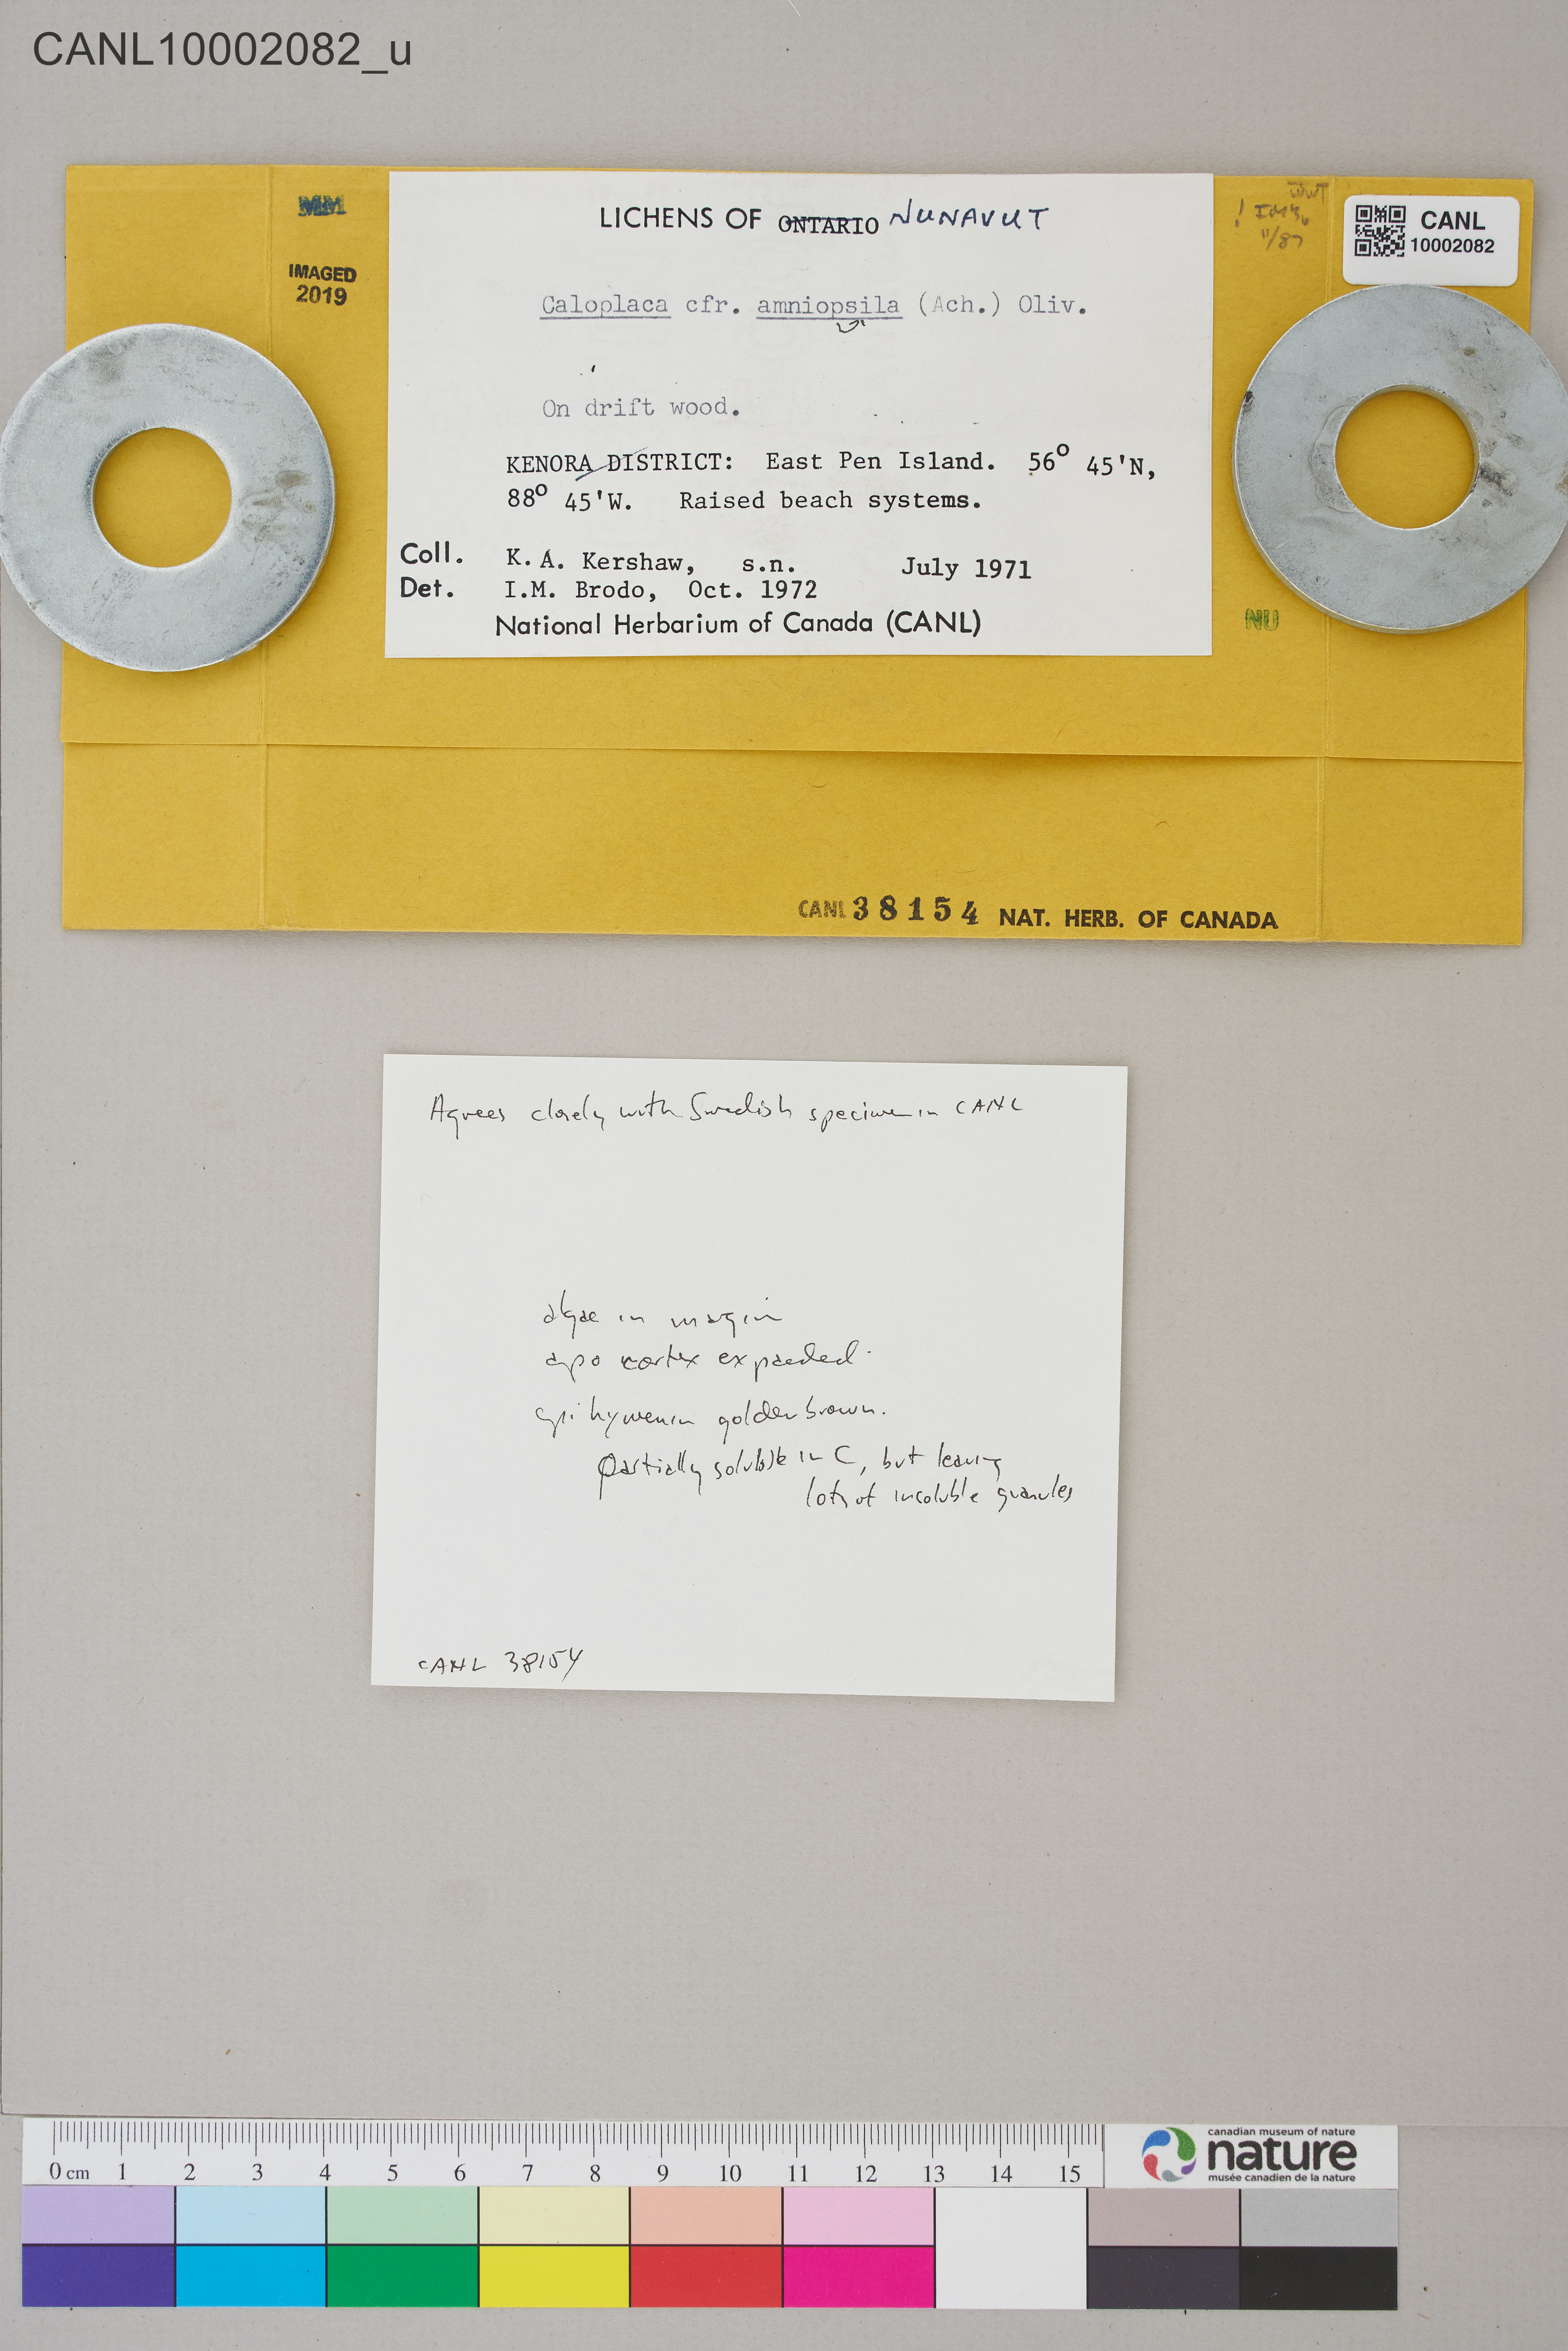 CANL10002082_u
MM
IMAGED
2019
LICHENS OF ONTARIO NUNAVUT
Caloplaca cfr. amniopsila (Ach.) Oliv.
On drift wood.
KENORA DISTRICT: East Pen Island. 56° 45'N,
88° 45'W. Raised beach systems.
Coll. K.A. Kershaw, s.n. July 1971
Det. I.M. Brodo, Oct. 1972
National Herbarium of Canada (CANL)
!
11/87
CANL
10002082
NU
CANL 38154 NAT. HERB. OF CANADA
Agrees closely with Swedish specimen in CANL
algae in margin
apo cortex expanded.
epihymenium golden brown.
partially soluble in C, but leaving
lots of insoluble granules
CANL 38154
0 cm 1 2 3 4 5 6 7 8 9 10 11 12 13 14 15
canadian museum of nature
nature
musée canadien de la nature